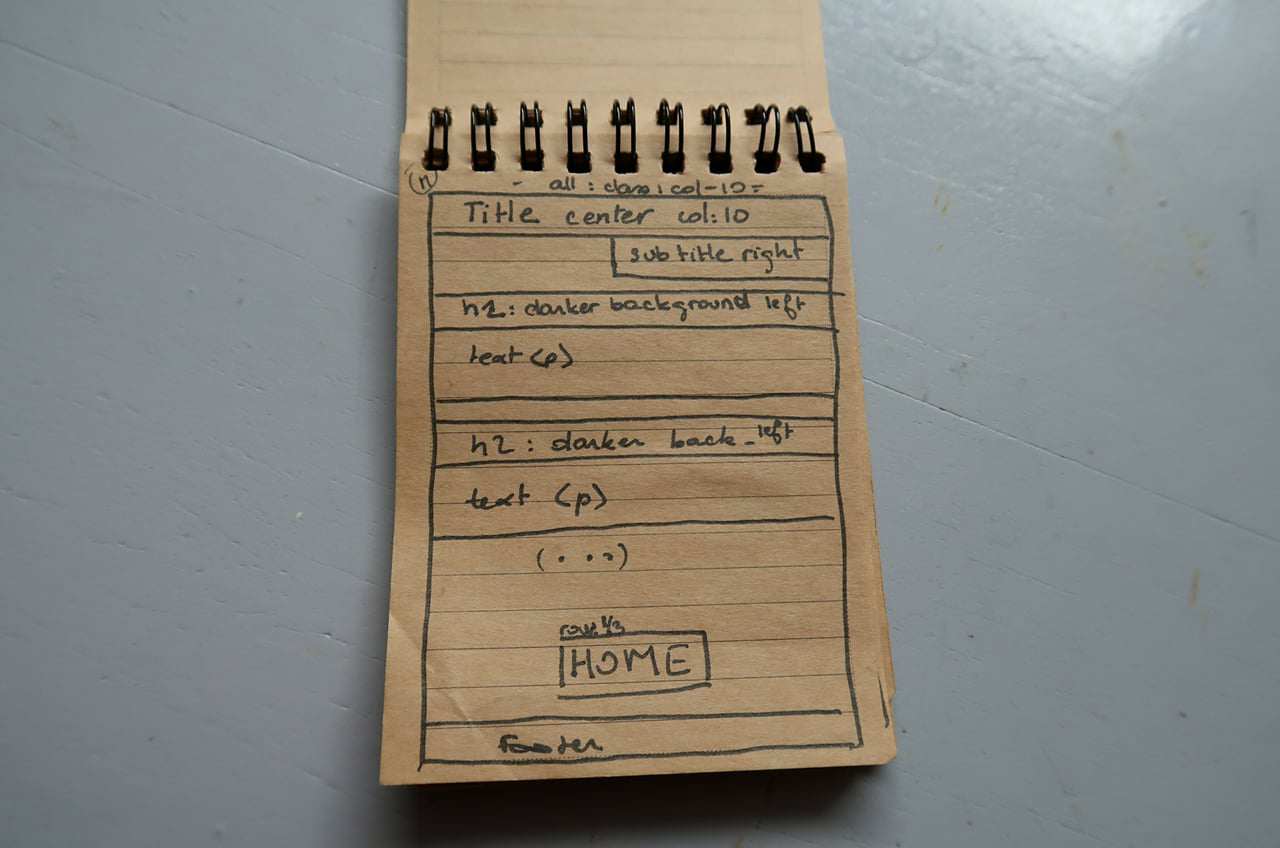 n
- all : class : col-10 =
Title center col:10
subtitle right
h2: darker background left
text (p)
h2: darker back_left
text (p)
(...)
HOME
Footer